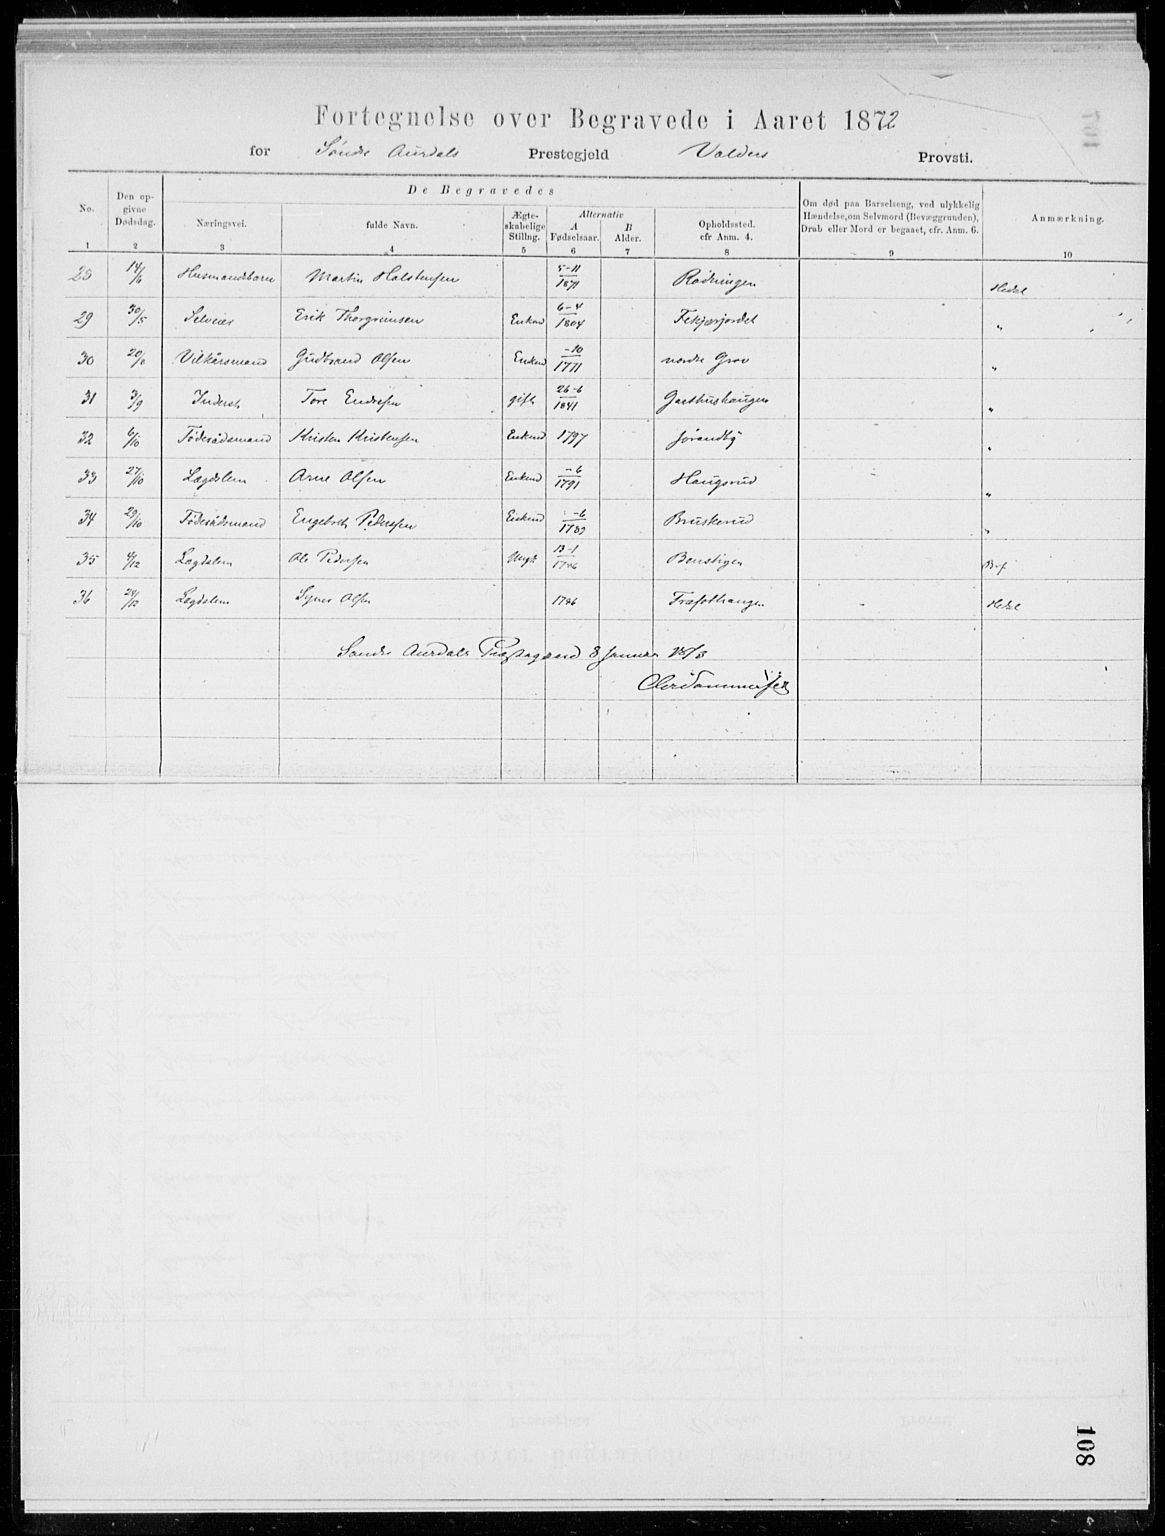 Fortegnelse over Begravede i Aaret 1872
for Søndre Aurdals Prestegjeld Valders Provsti.
De Begravedes
No. Den opgivne Dødsdag. Næringsvei. fulde Navn. Ægteskabelige Stillng. Alternativ A Fødselsaar. B Alder. Opholdssted. cfr Anm. 4. Om død paa Barselseng, ved ulykkelig Hændelse, om Selvmord (Bevæggrunden), Drab eller Mord er begaaet, cfr. Anm. 6. Anmærkning.
1 2 3 4 5 6 7 8 9 10
28 14/6 Husmandsbarn Martin Halstensen 5-11 1871 Rødningen Hedal
29 30/5 Selveier Erik Thorgrimsen Enkmd 6-4 1804 Fekjærjordet "
30 20/8 Vilkårsmand Gudbrand Olsen Enkmd -10 1771 nordre Grov "
31 3/9 Inderst Tore Endresen gift 26-6 1841 Garthushaugen "
32 6/10 Føderådsmand Kristen Kristensen Enkmd 1797 Jørandby "
33 27/10 Lægdslem Arne Olsen Enkmd -6 1791 Haugsrud "
34 29/10 Føderådsmand Engebret Pedersen Enkmd -6 1789 Bruskerud "
35 4/12 Lægdslem Ole Pedersen Ungk 13-1 1786 Benstigen
36 24/12 Lægdslem Syver Olsen 1786 Hedal
Søndre Aurdals Præstegaard 8 Januar 1873
108